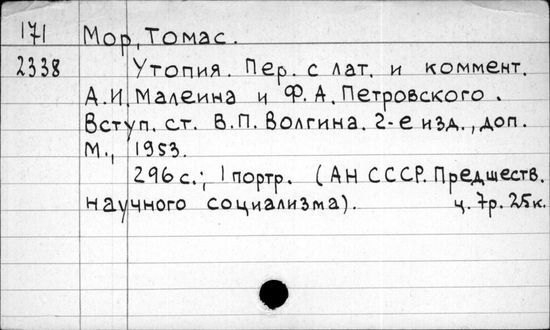 171 Мор, Томас.
2338 Утопия. Пер. с лат. и коммент.
А.И. Малеина и Ф.А. Петровского.
Вступ. ст. В.П. Волгина. 2-е изд., доп.
М., 1953.
296 с.; 1 портр. (АН СССР. Предшеств.
научного социализма). ц. 7р. 25к.